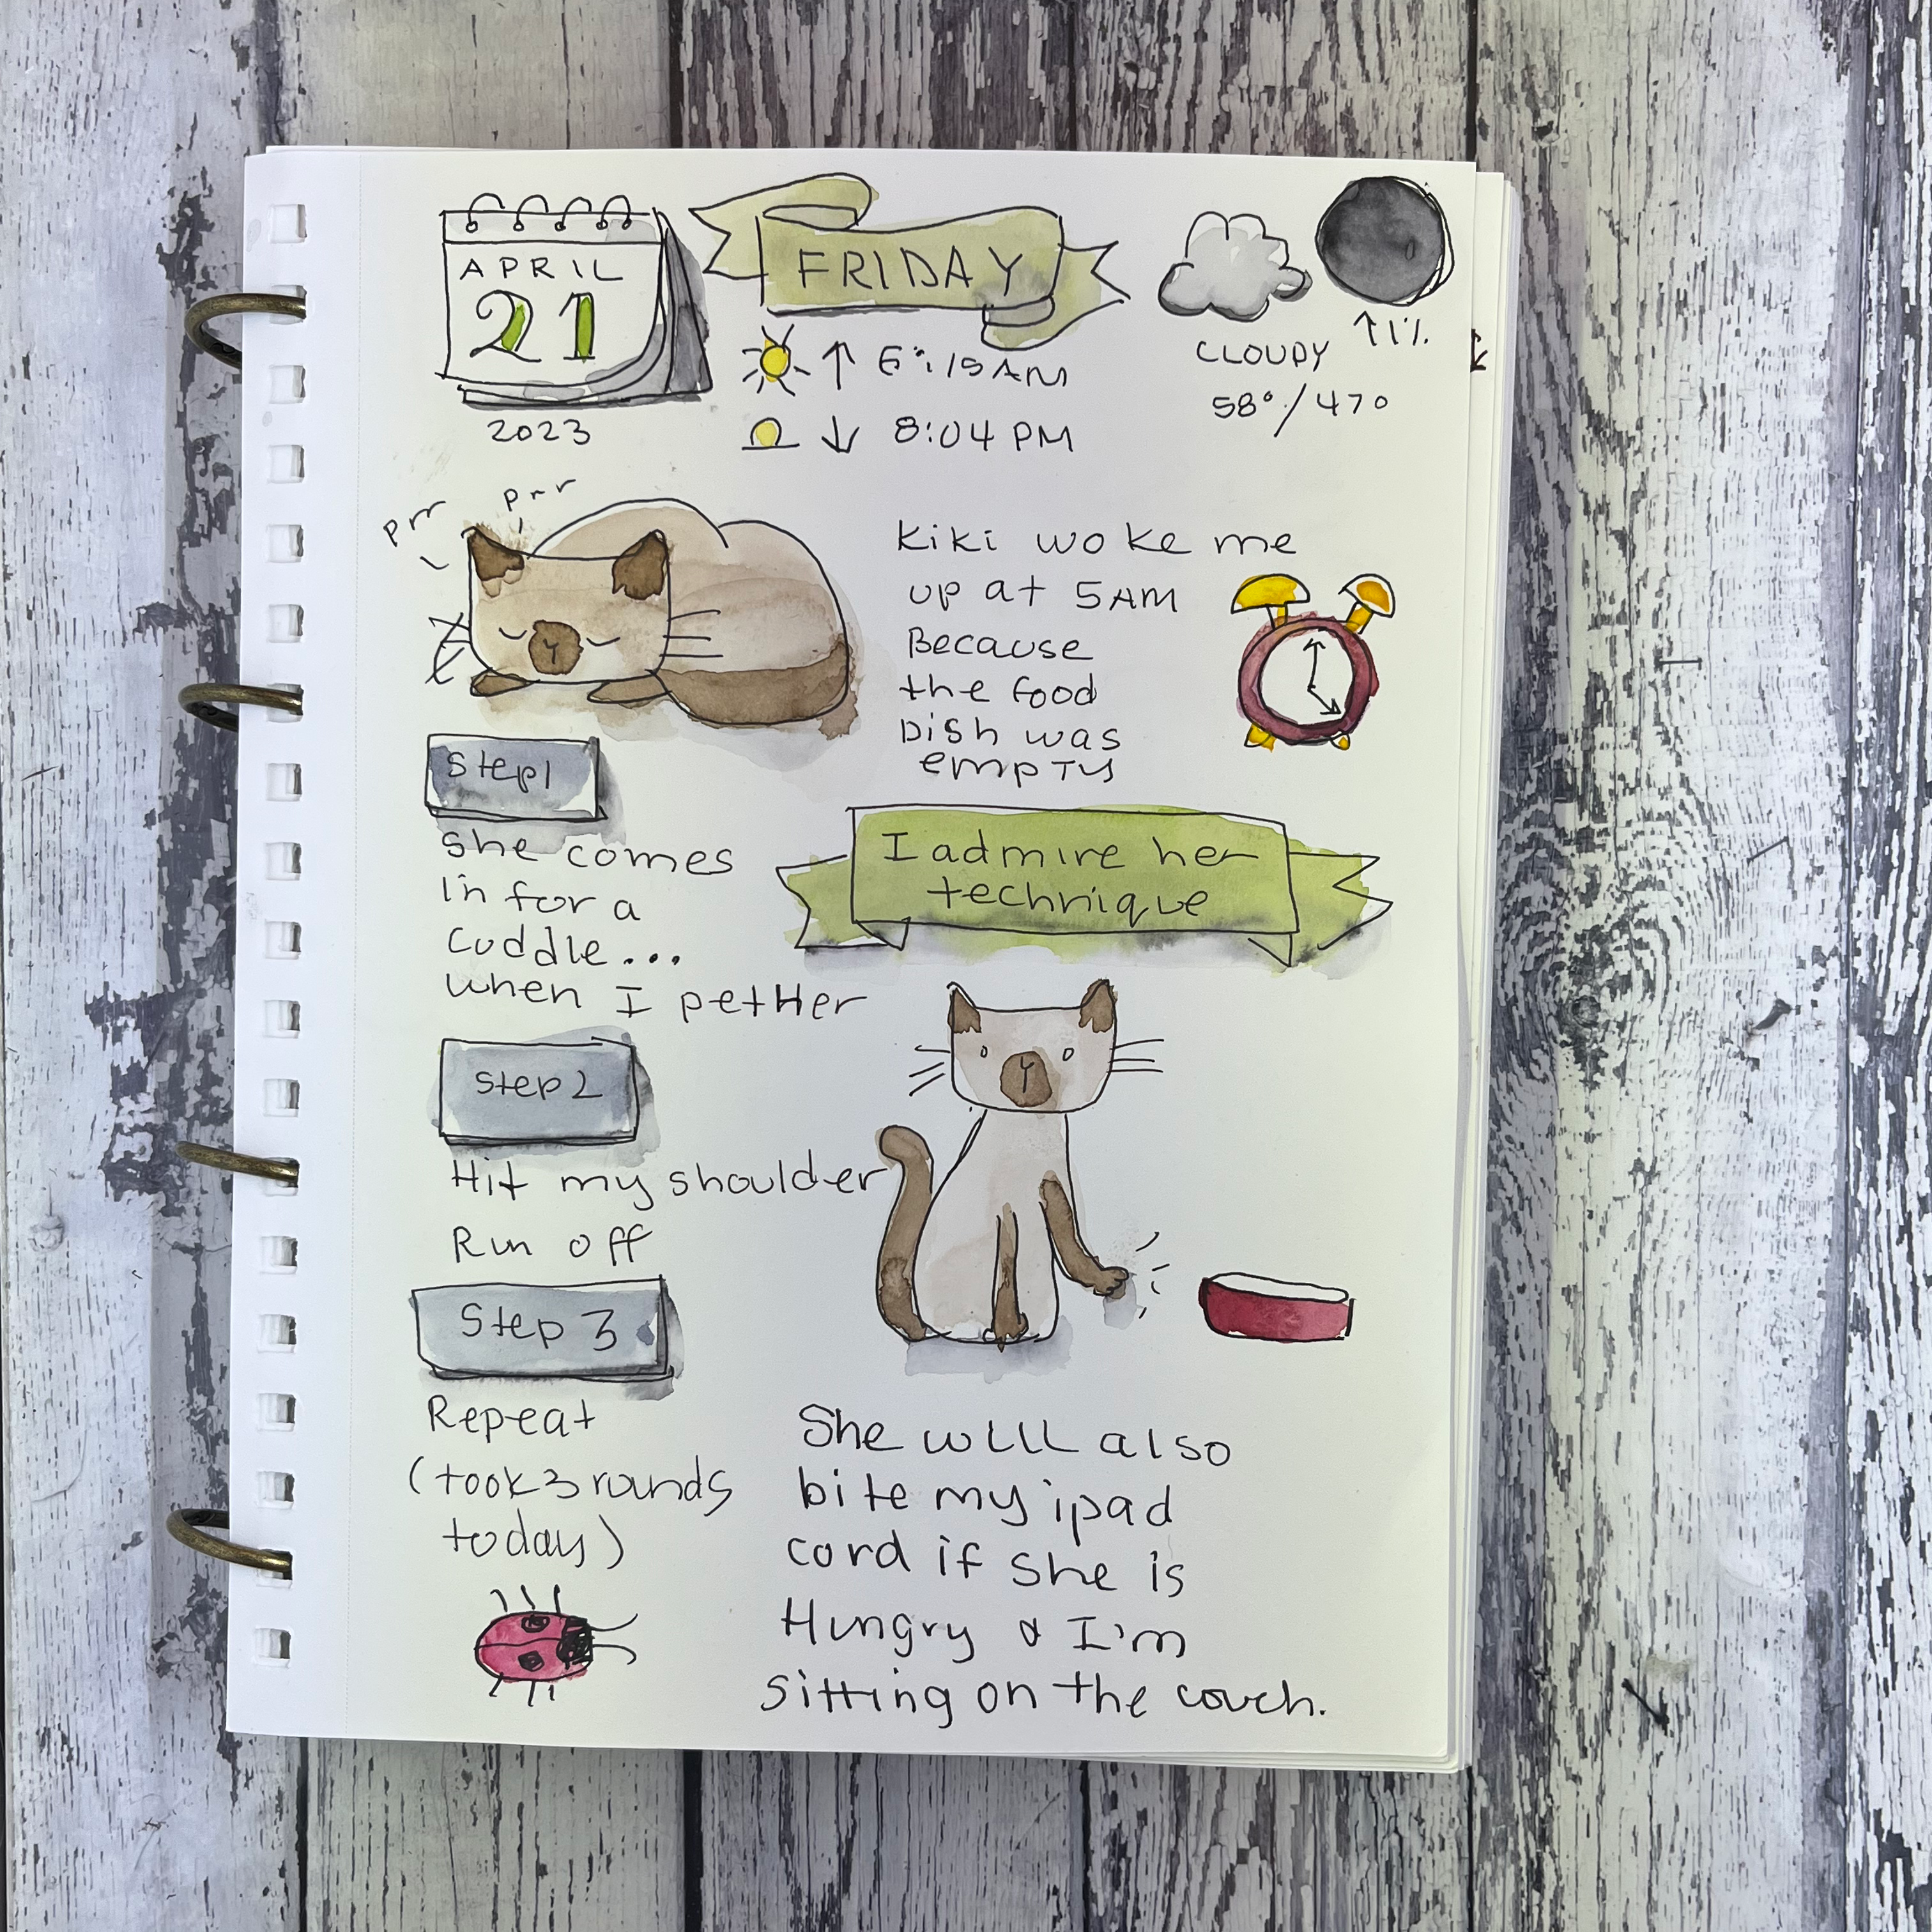 APRIL
21
2023
FRIDAY
↑ 6:15 AM
↓ 8:04 PM
CLOUDY
58°/47°
↑1%
prr
prr
Kiki woke me
up at 5AM
Because
the food
Dish was
empty
Step1
She comes
in for a
cuddle...
when I pet Her
I admire her
technique
Step 2
Hit my shoulder
Run off
Step 3
Repeat
(took 3 rounds
today)
She will also
bite my ipad
cord if she is
Hungry & I'm
sitting on the couch.